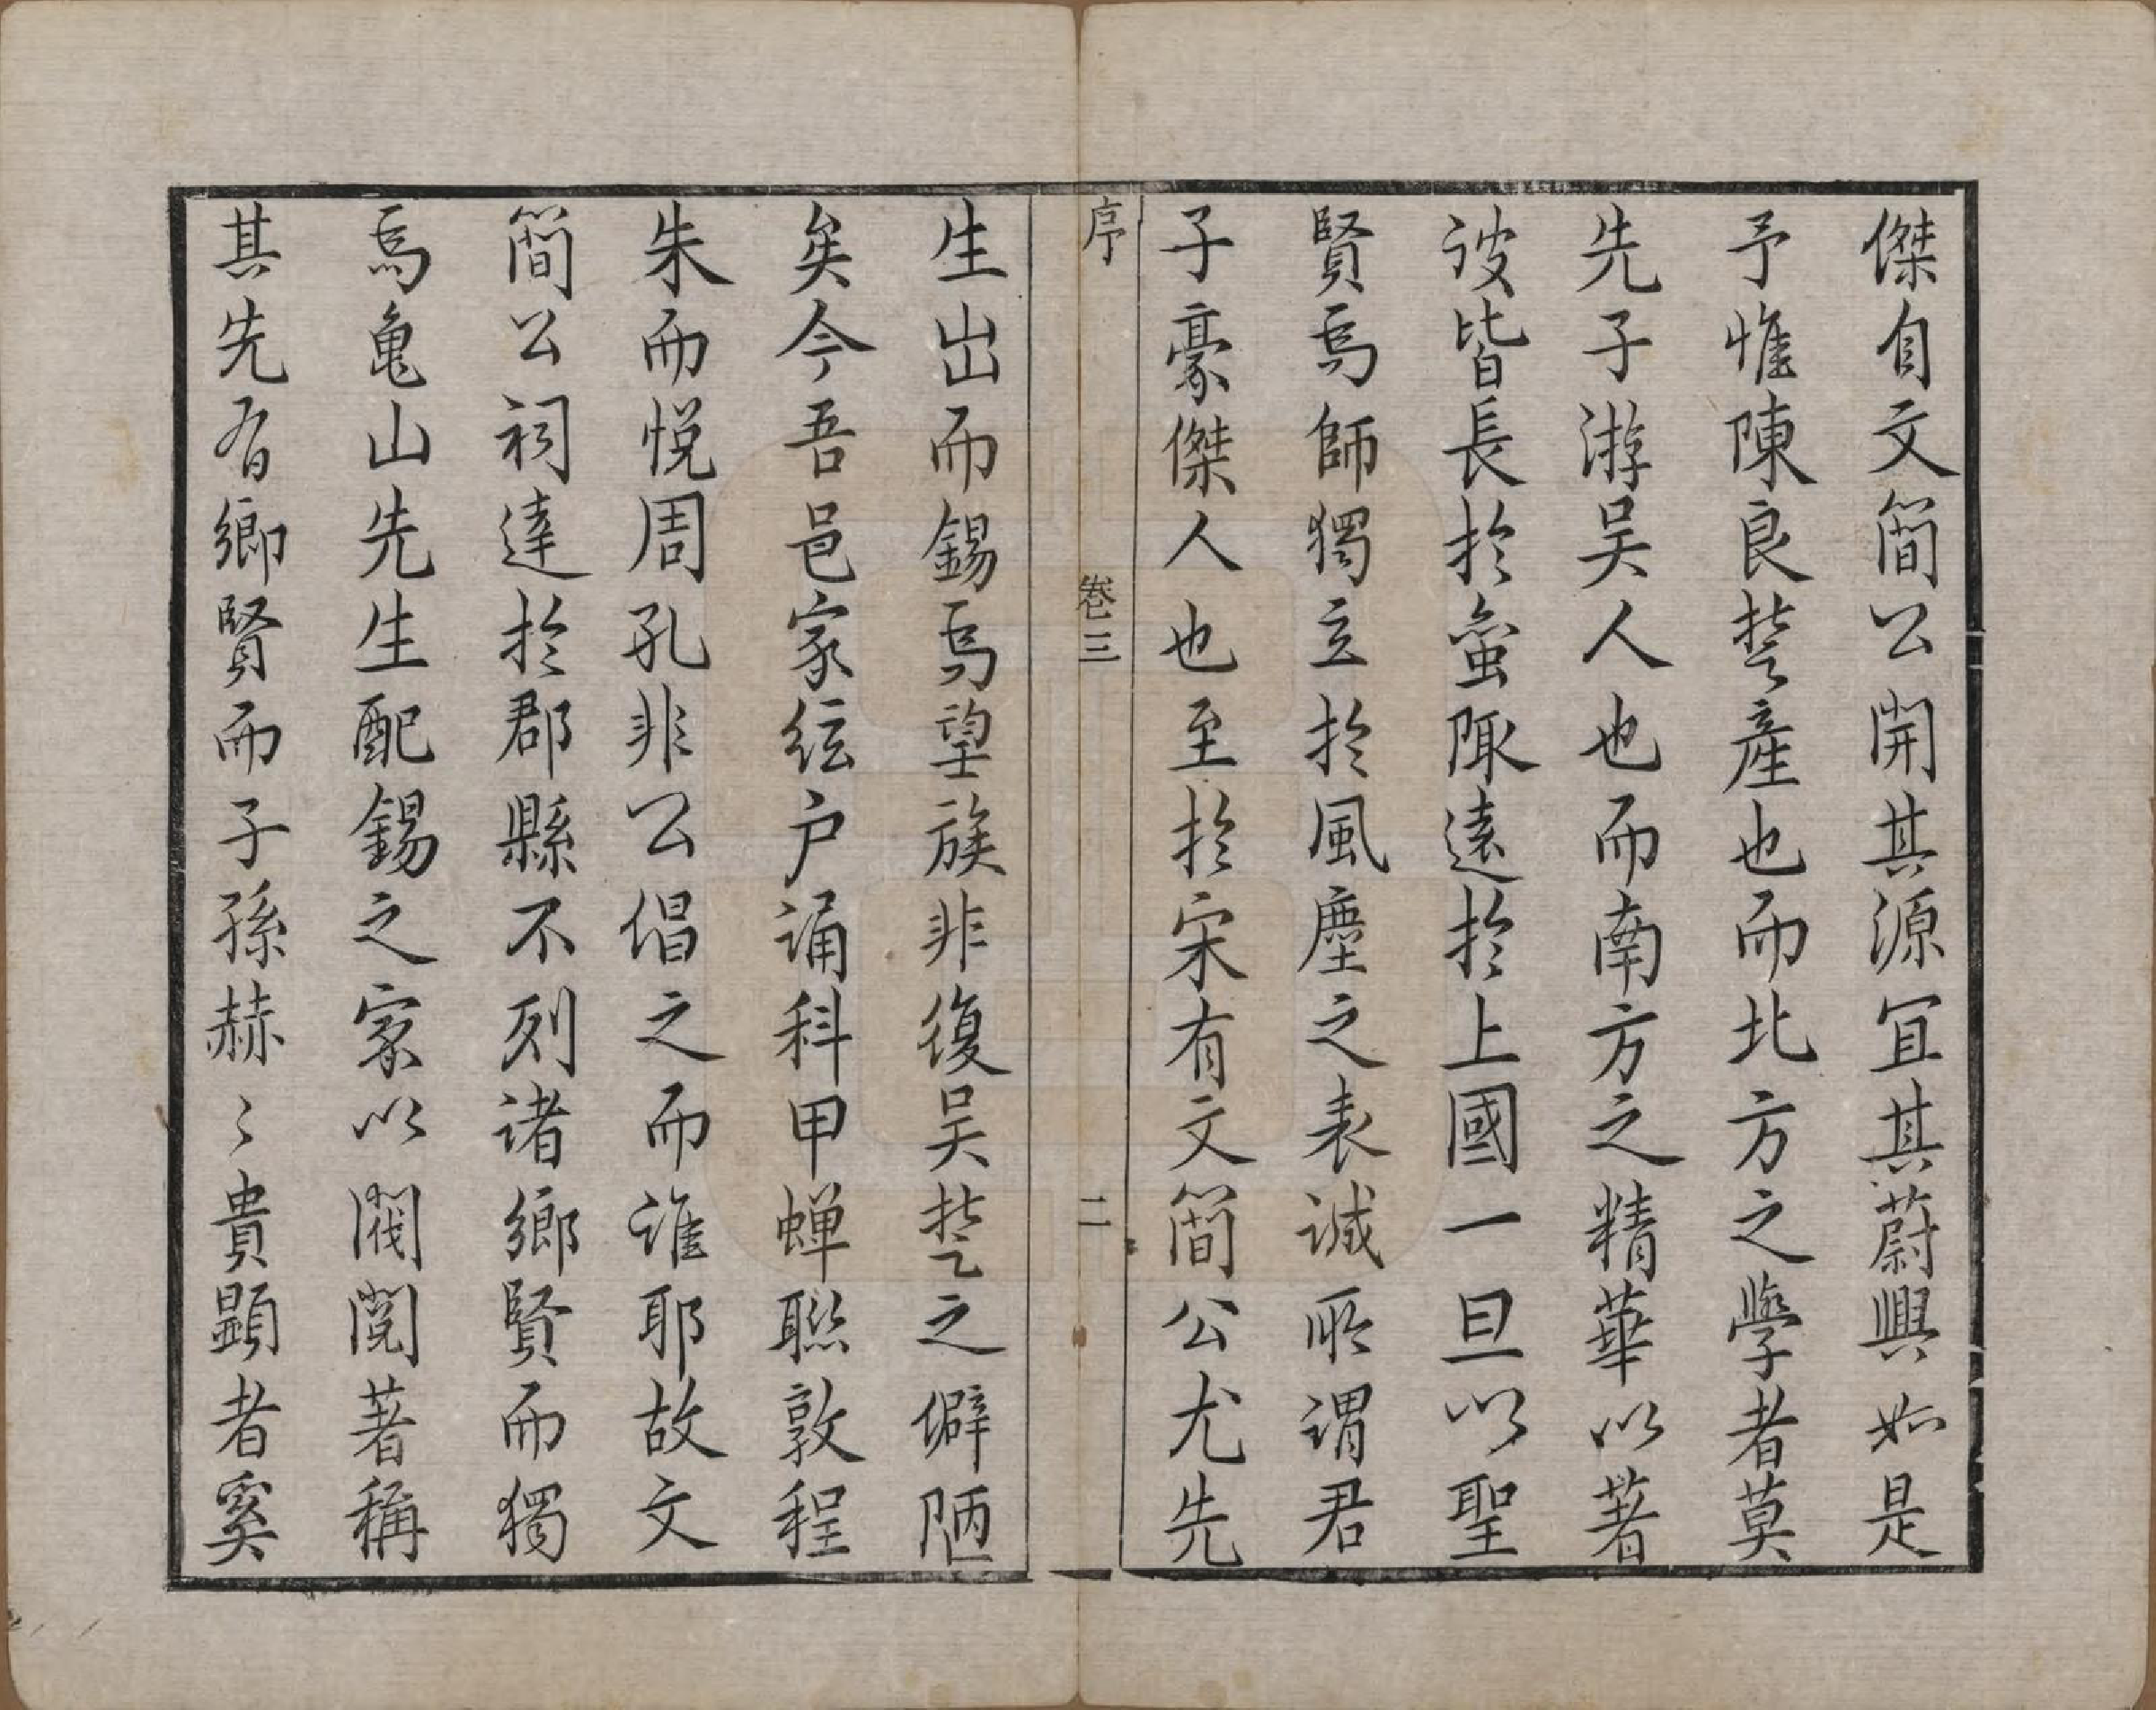 傑自文簡公開其源宜其蔚興如是
予惟陳良楚產也而北方之學者莫
先子游吴人也而南方之精華以著
彼皆長於蛮陬遠於上國一旦以聖
賢爲師獨立於風塵之表誠所謂君
子豪傑人也至於宋有文簡公尤先
序 卷三 二
生出而錫爲望族非復吴楚之僻陋
矣今吾邑家絃户誦科甲蝉聮敦程
朱而悦周孔非公倡之而誰耶故文
簡公祠達於郡縣不列诸鄉賢而獨
爲亀山先生配錫之家以閥閱著稱
其先有鄉賢而子孫赫〻貴顕者奚